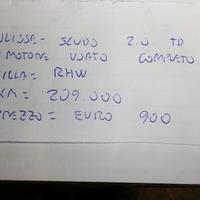 ULISSE- SCUDO 2.0 TD
MOTORE USATO COMPLETO
SIGLA= RHW
KM= 209.000
PREZZO= EURO 900